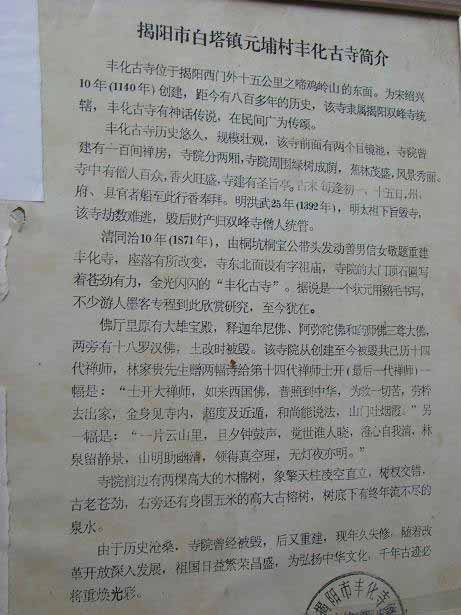 揭阳市白塔镇元埔村丰化古寺简介
丰化古寺位于揭阳西门外十五公里之啼鸡岭山的东面。为宋绍兴
10年(1140年)创建，距今有八百多年的历史，该寺隶属揭阳双峰寺统
辖，丰化古寺有神话传说，在民间广为传颂。
丰化古寺历史悠久，规模壮观，该寺前面有两个目镜池，寺院曾
建有一百间禅房，寺院分两厢，寺院周围绿树成荫，蕉林茂盛，风景秀丽。
寺中有僧人百众，香火旺盛，寺建有圣旨亭。古来每逢初一、十五日，州、
府、县官者船至此行香奉拜。明洪武25年(1392年)，明太祖下旨毁寺，
该寺劫数难逃，毁后财产归双峰寺僧人统管。
清同治10年(1871年)，由桐坑桐宝公带头发动善男信女敬题重建
丰化寺，座落有所改变，寺东北面设有字祖庙，寺院的大门顶石匾写
着苍劲有力，金光闪闪的“丰化古寺”。据说是一个状元用鹅毛书写，
不少游人墨客专程到此欣赏研究，至今犹在。
佛厅里原有大雄宝殿，释迦牟尼佛、阿弥陀佛和药师佛三尊大佛，
两旁有十八罗汉佛，土改时被毁。该寺院从创建至今被毁共已历十四
代禅师，林家贵先生赠两幅诗给第十四代禅师士开(最后一代禅师)一
幅是：“士开大禅师，如来西国佛，普照到中华，为救一切苦，劳矜
去出家，金身见寺内，超度及近遁，和尚能说法，山门吐烟霞。”另
一幅是：“一片云山里，日夕钟鼓声，觉世谁人晓，澄心自我清，林
泉留静景，山明助幽清，领得真空理，无灯夜亦明。”
寺院前边有两棵高大的木棉树，象擎天柱凌空直立，树杈交错，
古老苍劲，右旁还有身围五米的高大古榕树，树底下有终年流不尽的
泉水。
由于历史沧桑，寺院曾经被毁，后又重建，现年久失修，随着改
革开放深入发展，祖国日益繁荣昌盛，为弘扬中华文化，千年古迹必
将重焕光彩。
揭阳市丰化寺